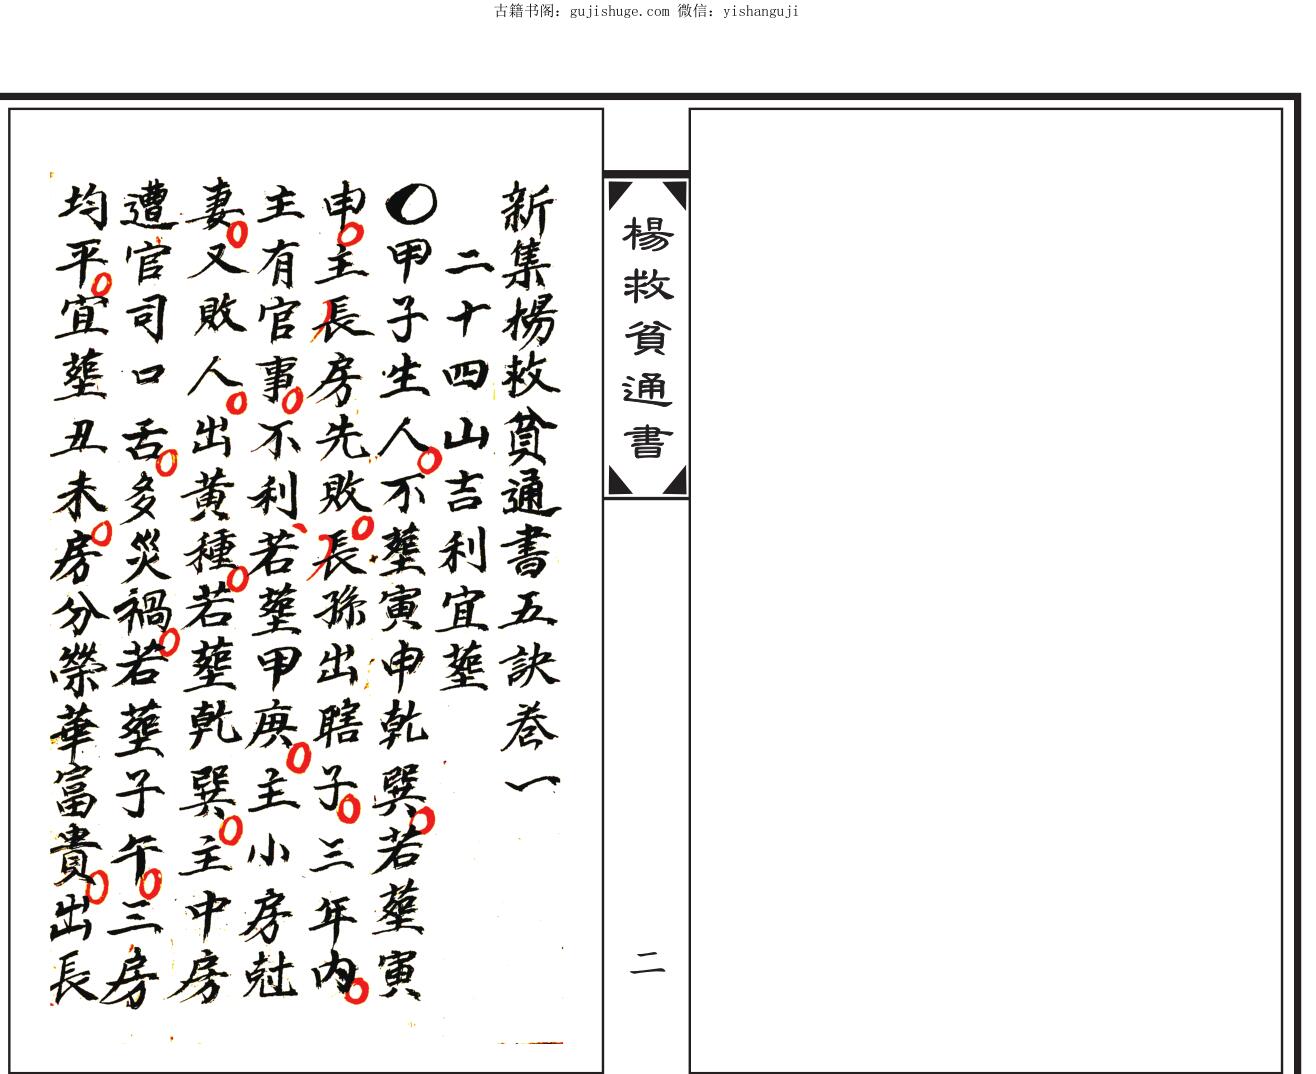 古籍书阁：gujishuge.com 微信：yishanguji
楊救貧通書
二
新集楊救貧通書五訣卷一
二十四山吉利宜塟
〇甲子生人不塟寅申乾巽若塟寅
申主長房先敗長孫出瞎子三年内
主有官事不利若塟甲庚主小房尅
妻又敗人出黄種若塟乾巽主中房
遭官司口舌多災禍若塟子午三房
均平宜塟丑未房分榮華富貴出長